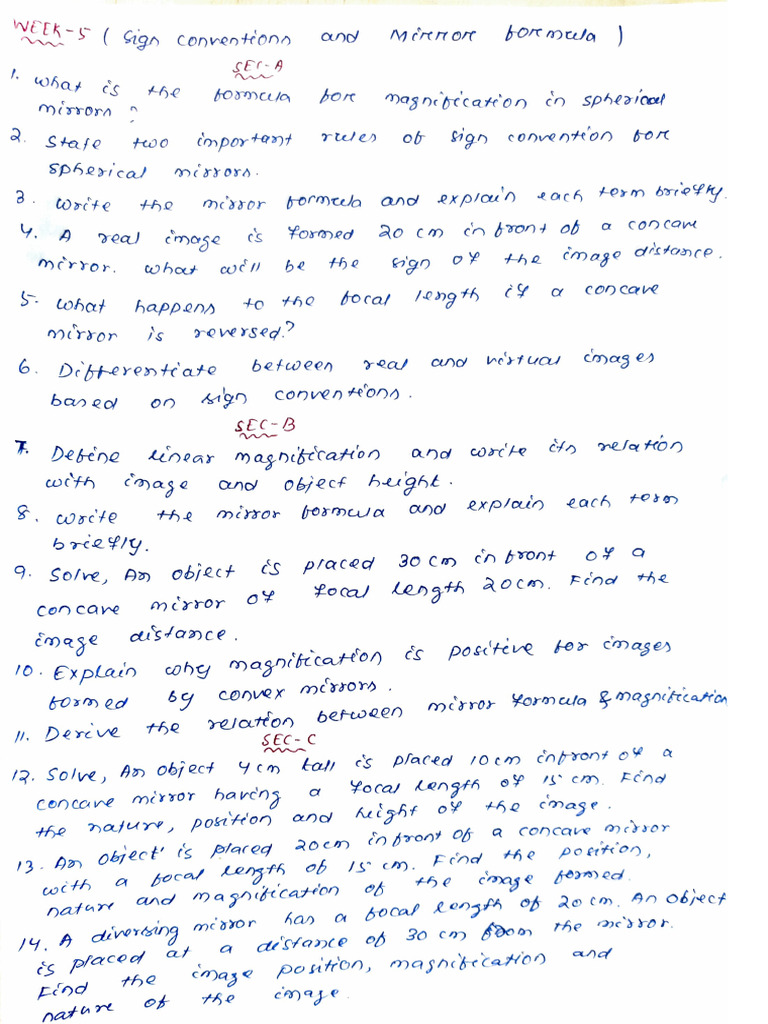 WEEK-5 (Sign conventions and Mirror formula)
SEC-A
1. What is the formula for magnification in spherical
mirrors?
2. State two important rules of sign convention for
spherical mirrors.
3. Write the mirror formula and explain each term briefly.
4. A real image is formed 20 cm in front of a concave
mirror. What will be the sign of the image distance.
5. What happens to the focal length if a concave
mirror is reversed?
6. Differentiate between real and virtual images
based on sign conventions.
SEC-B
7. Define linear magnification and write its relation
with image and object height.
8. Write the mirror formula and explain each term
briefly.
9. Solve, An object is placed 30 cm in front of a
concave mirror of focal length 20cm. Find the
image distance.
10. Explain why magnification is positive for images
formed by convex mirrors.
11. Derive the relation between mirror formula & magnification
SEC-C
12. Solve, An object 4 cm tall is placed 10 cm infront of a
concave mirror having a focal length of 15 cm. Find
the nature, position and height of the image.
13. An object is placed 20cm in front of a concave mirror
with a focal length of 15 cm. Find the position,
nature and magnification of the image formed.
14. A diversing mirror has a focal length of 20 cm. An object
is placed at a distance of 30 cm from the mirror.
Find the image position, magnification and
nature of the image.